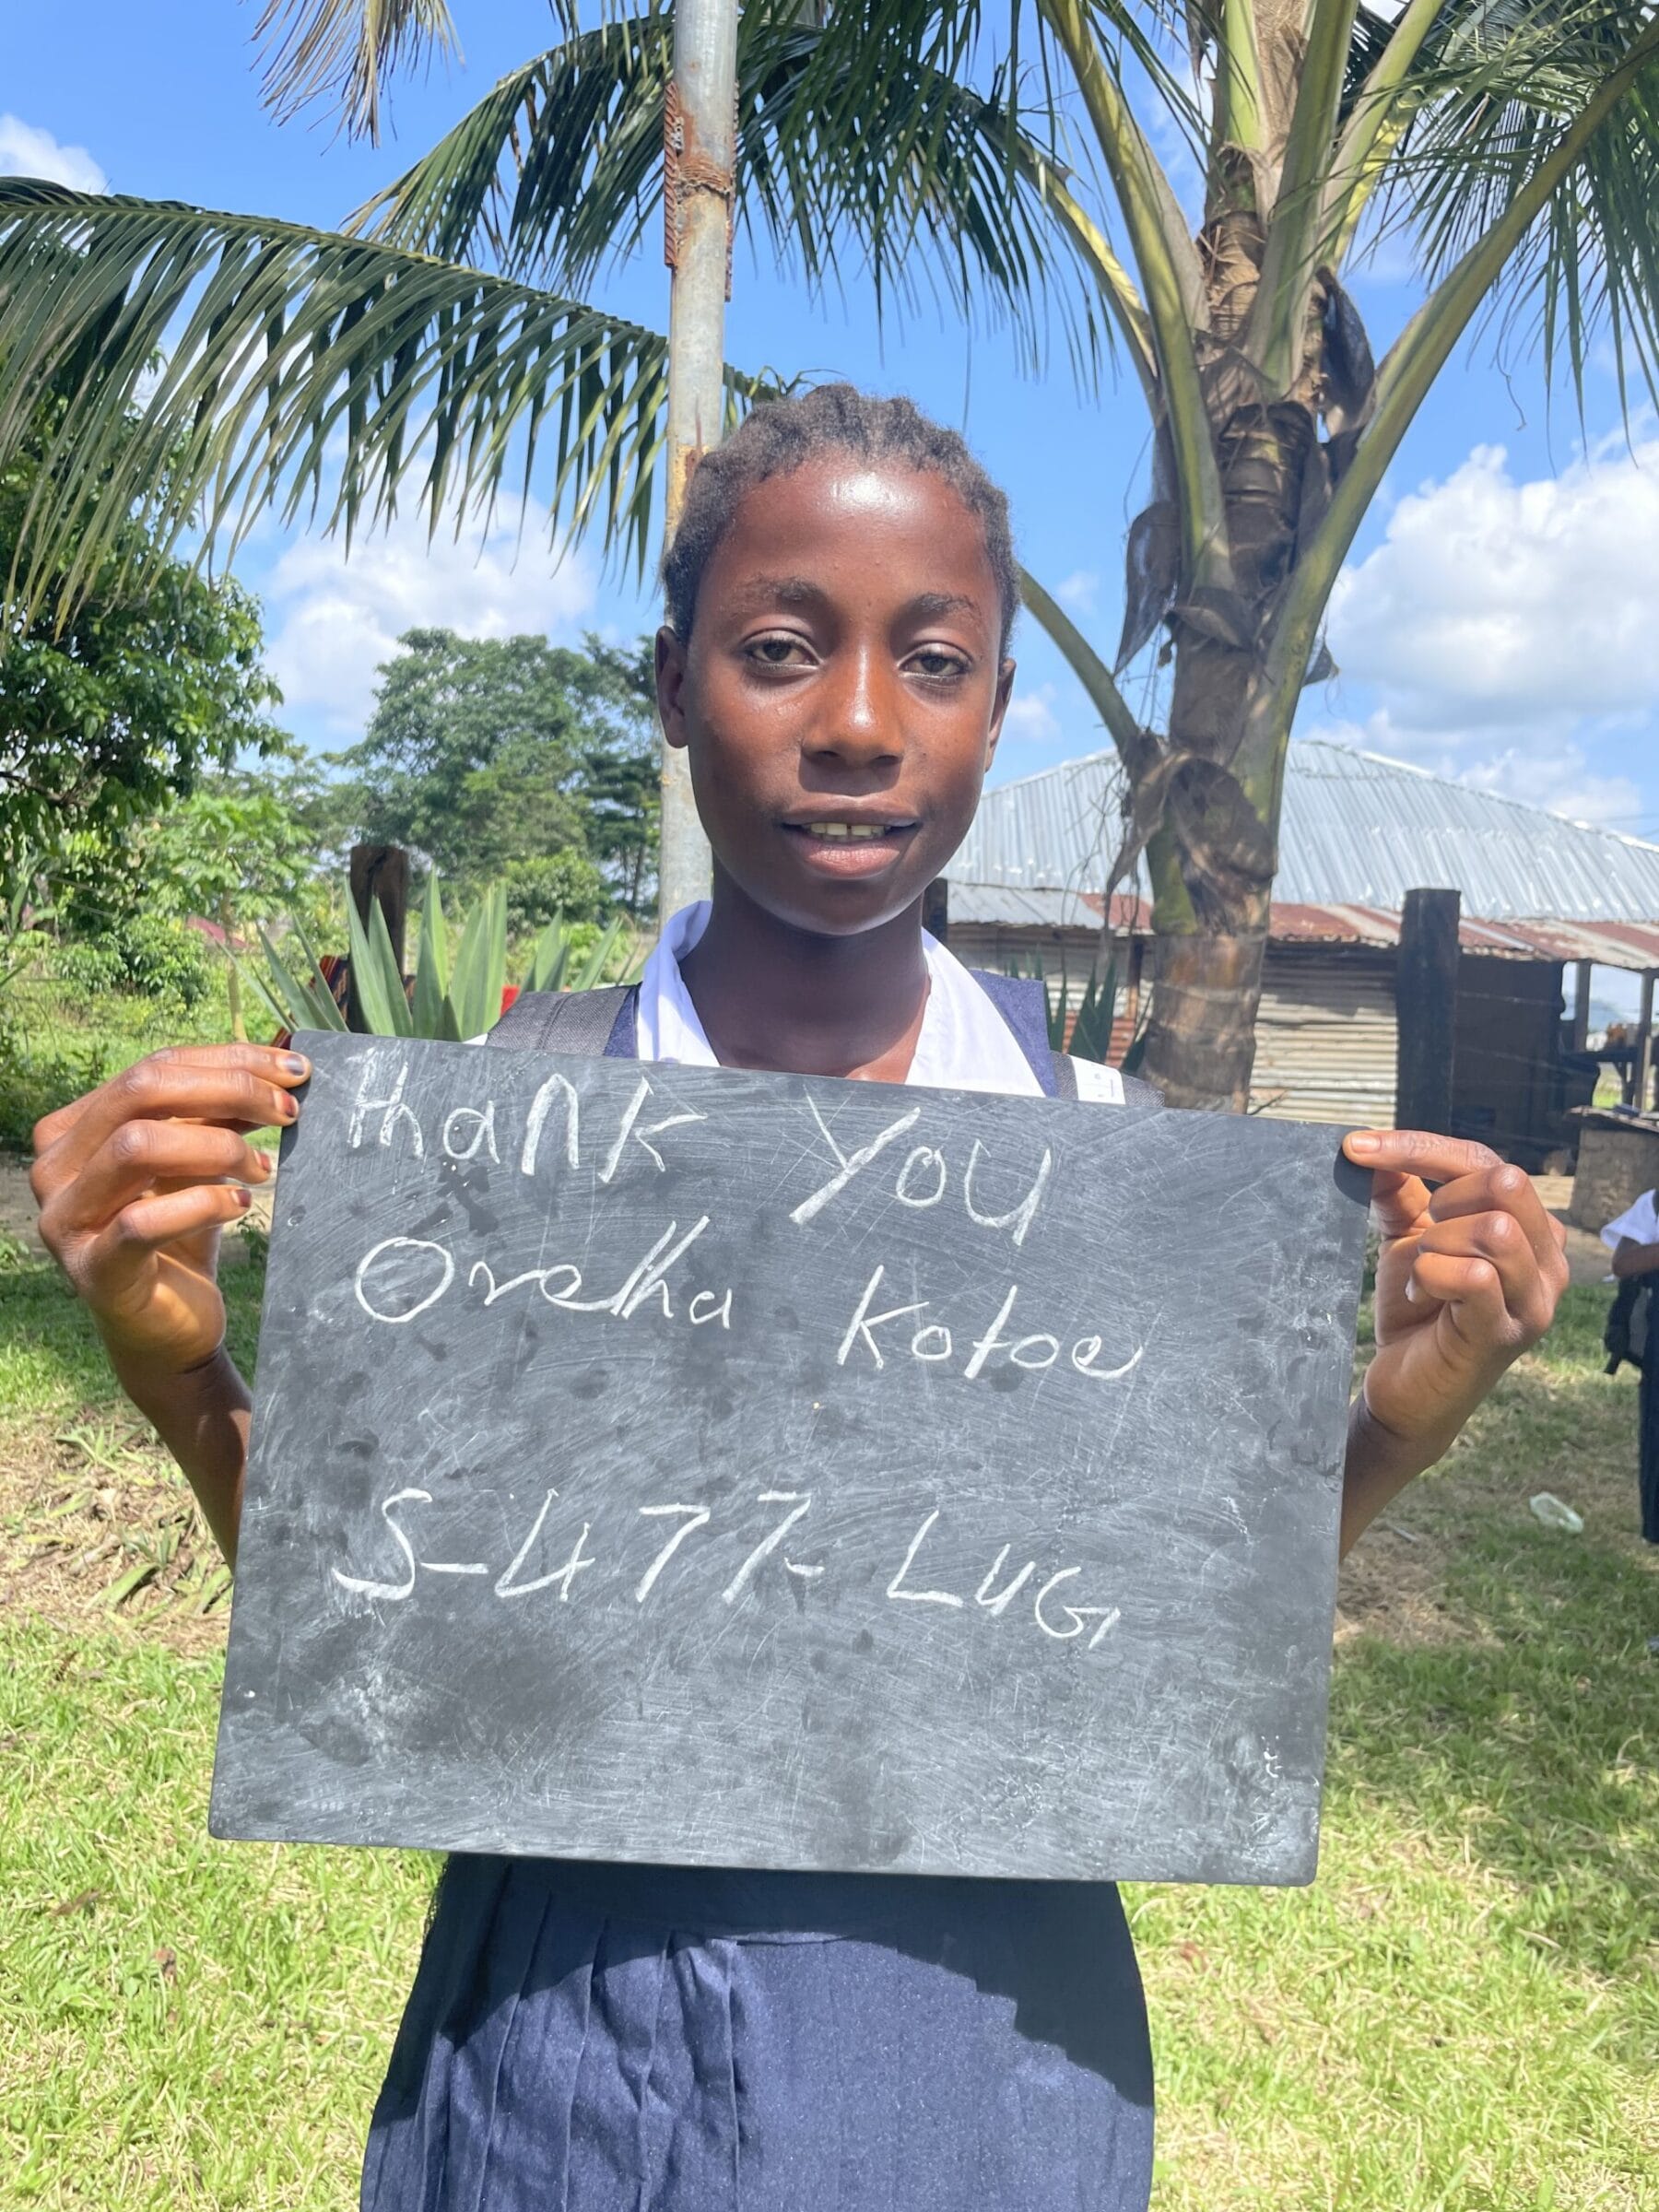 Thank You
Oretha Kotoe
S-477-LUG